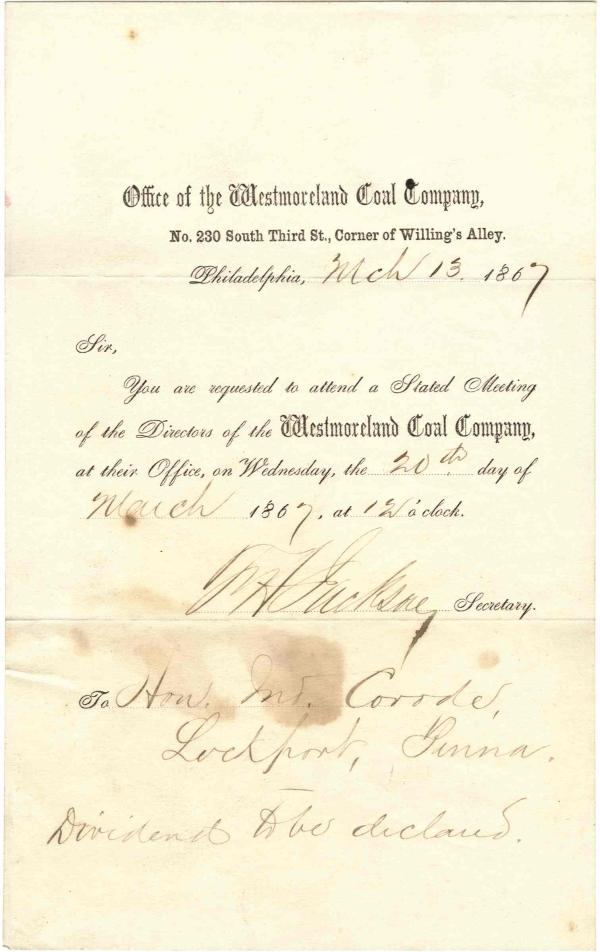 Office of the Westmoreland Coal Company,
No. 230 South Third St., Corner of Willing's Alley.
Philadelphia, Mch 13. 1867
Sir,
You are requested to attend a Stated Meeting
of the Directors of the Westmoreland Coal Company,
at their Office, on Wednesday, the 20th. day of
March 1867. at 12 o'clock.
Jackson Secretary.
To Hon. Jno. Covode,
Lockport, Penna.
Dividend to be declared.